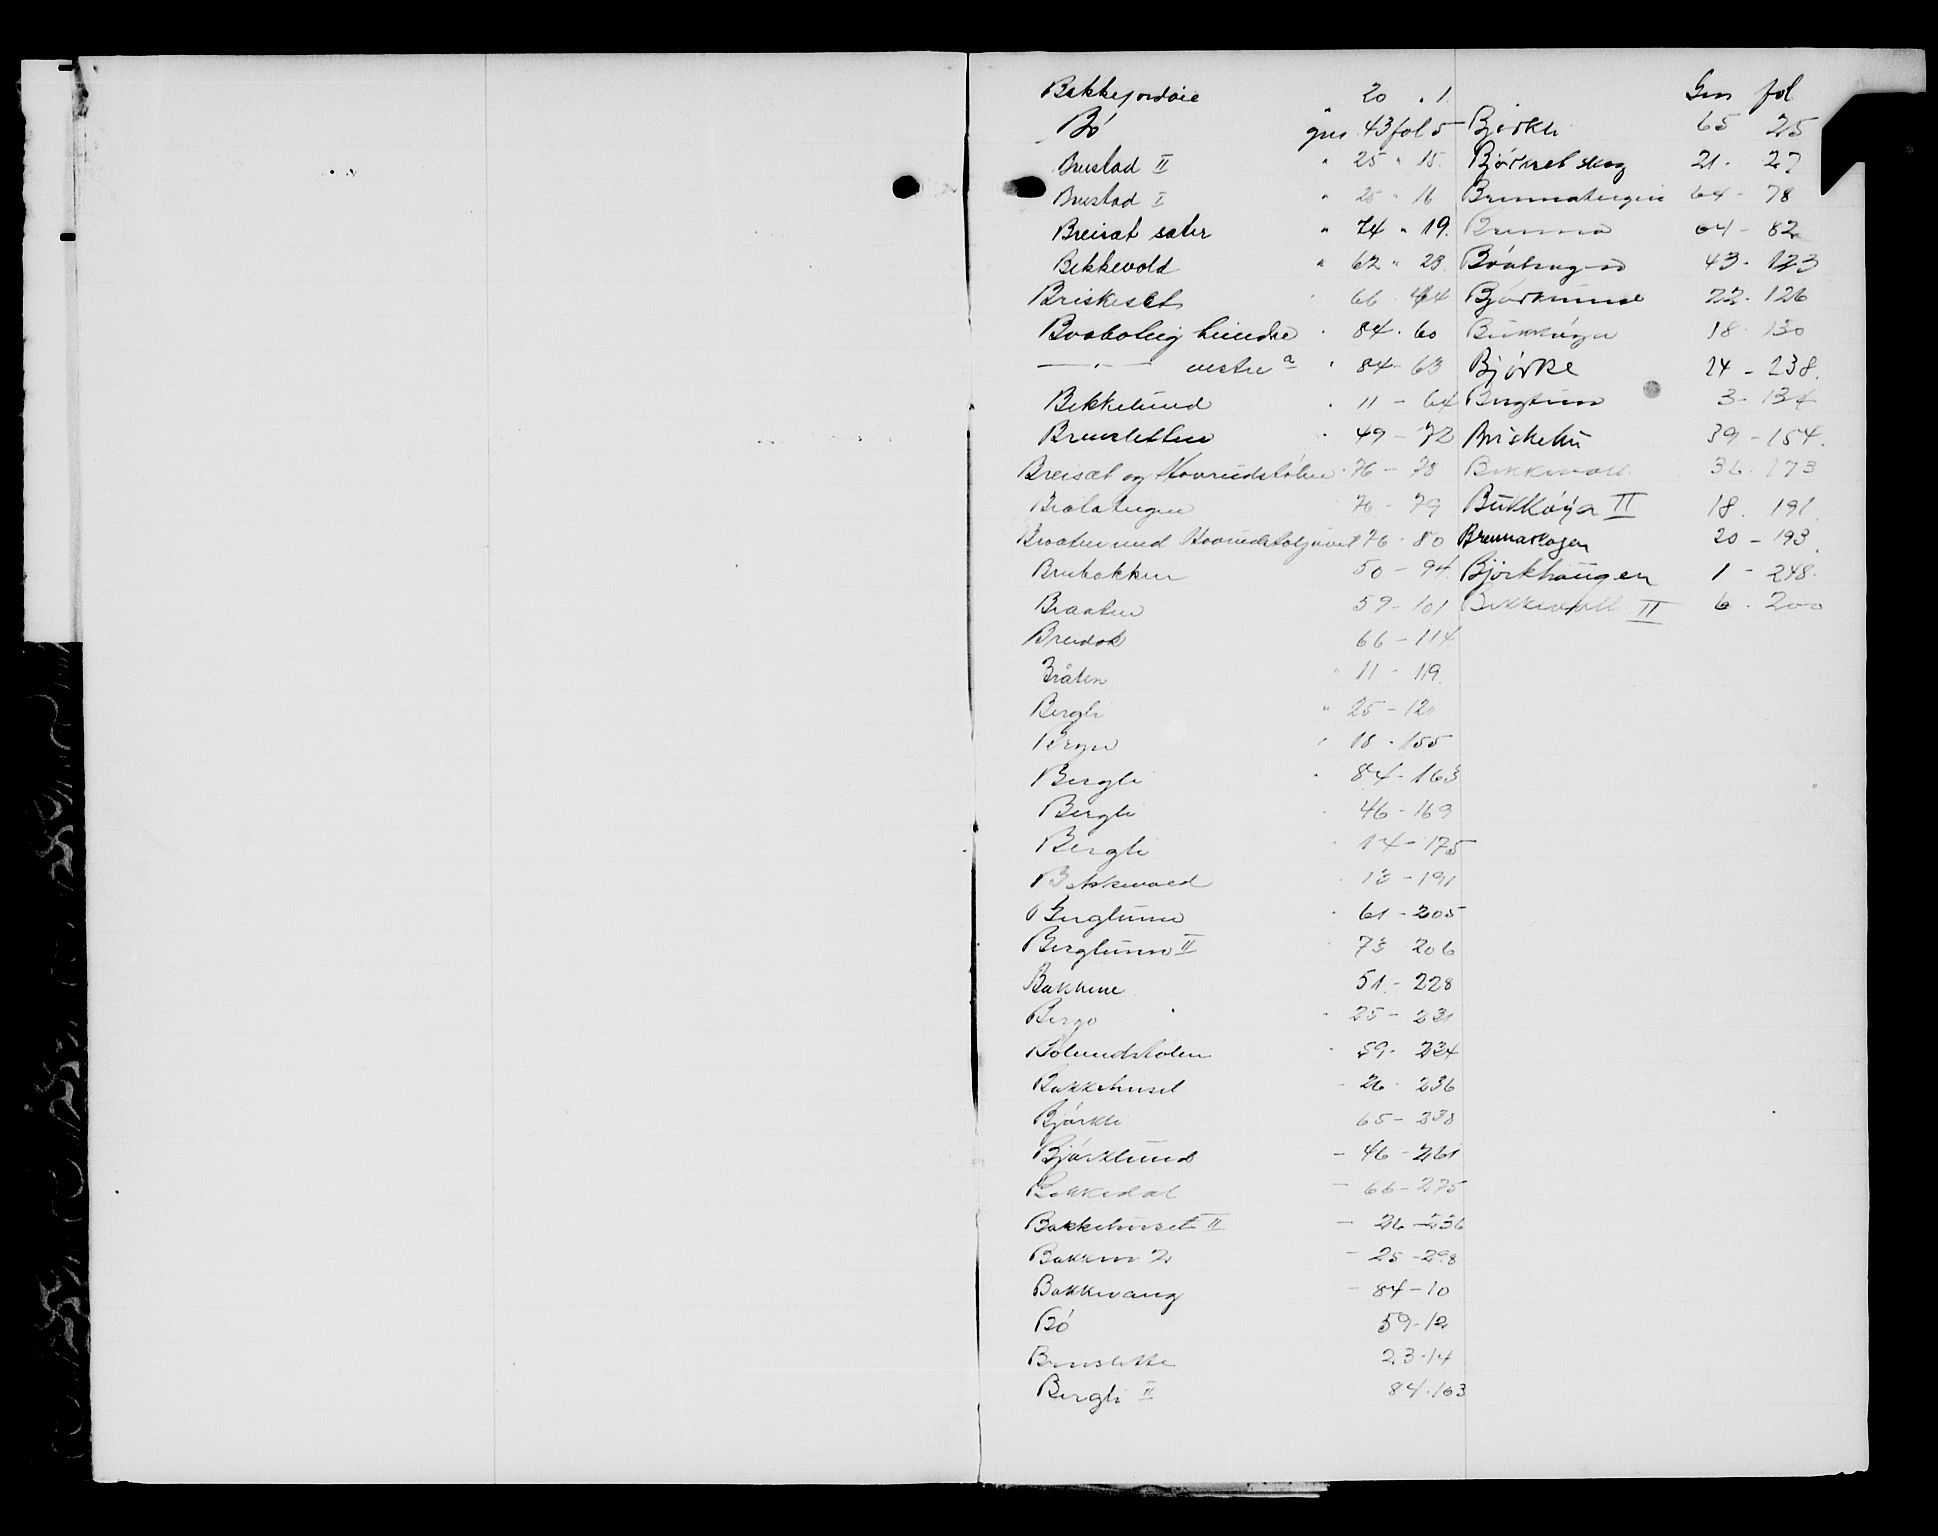 Bekkejordøie " 20 " 1.
Bö gns 43 fol 5
Brustad II " 25 " 15.
Brustad I " 25 " 16
Breisæt sæter " 74 " 19.
Bekkevold " 62 " 23.
Briskeset 66 44
Braabolig hindre 84 . 60
— " — vestre a 84 - 63
Bekkelund 11 - 64
Brunsletten 49 - 72
Breisæt og Hovrudstølen 76 - 78
76 - 79
Braaten med 76 - 80
Brubakken 50 - 94
Braaten 59 - 101
Breidok 66 - 114
Bråten " 11 - 119.
Bergli " 25 - 120
18 - 155
Bergli 84 - 163
Bergli 46 - 169
Bergli 14 - 175
Bekkevold 13 - 191
Berglund 61 - 205
Berglund II 73 206
Bakkene 51 - 228
Bergo 25 - 231
Bölundstölen 59 - 234
Bakkehuset - 26 - 236
Björkli 65 - 238
Björklund - 46 - 261
Bekkedal - 66 - 275
Bakkehuset II - 26 - 236
Bakken 2 - 25 - 298
Bakkevang - 84 - 10
Bö 59 - 12
Brunslette 23 - 14
Bergli II 84 . 163
Gns fol
Bjørkli 65 - 25
Bjørnset skog 21 - 27
Brennatergen 64 - 78
Brenna 64 - 82
Bråhagen 43 - 123
Björkmund 22 - 126
Bukköya 18 - 130
Björke 24 - 238.
Berglund 3 - 134
Briskelii 39 - 154.
Bekkevoll 36 - 173
Bukköya II 18 . 191
Brennaskogen 20 - 193
Björkhaugen 1 - 248.
Bekkevoll II 6 . 200